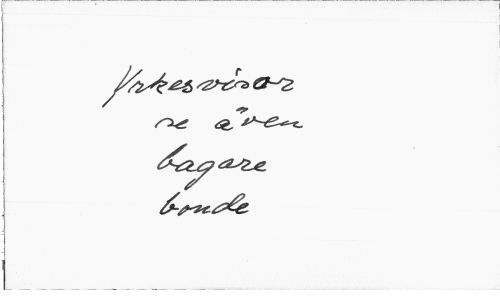 Yrkesvisor
se även
bagare
bonde